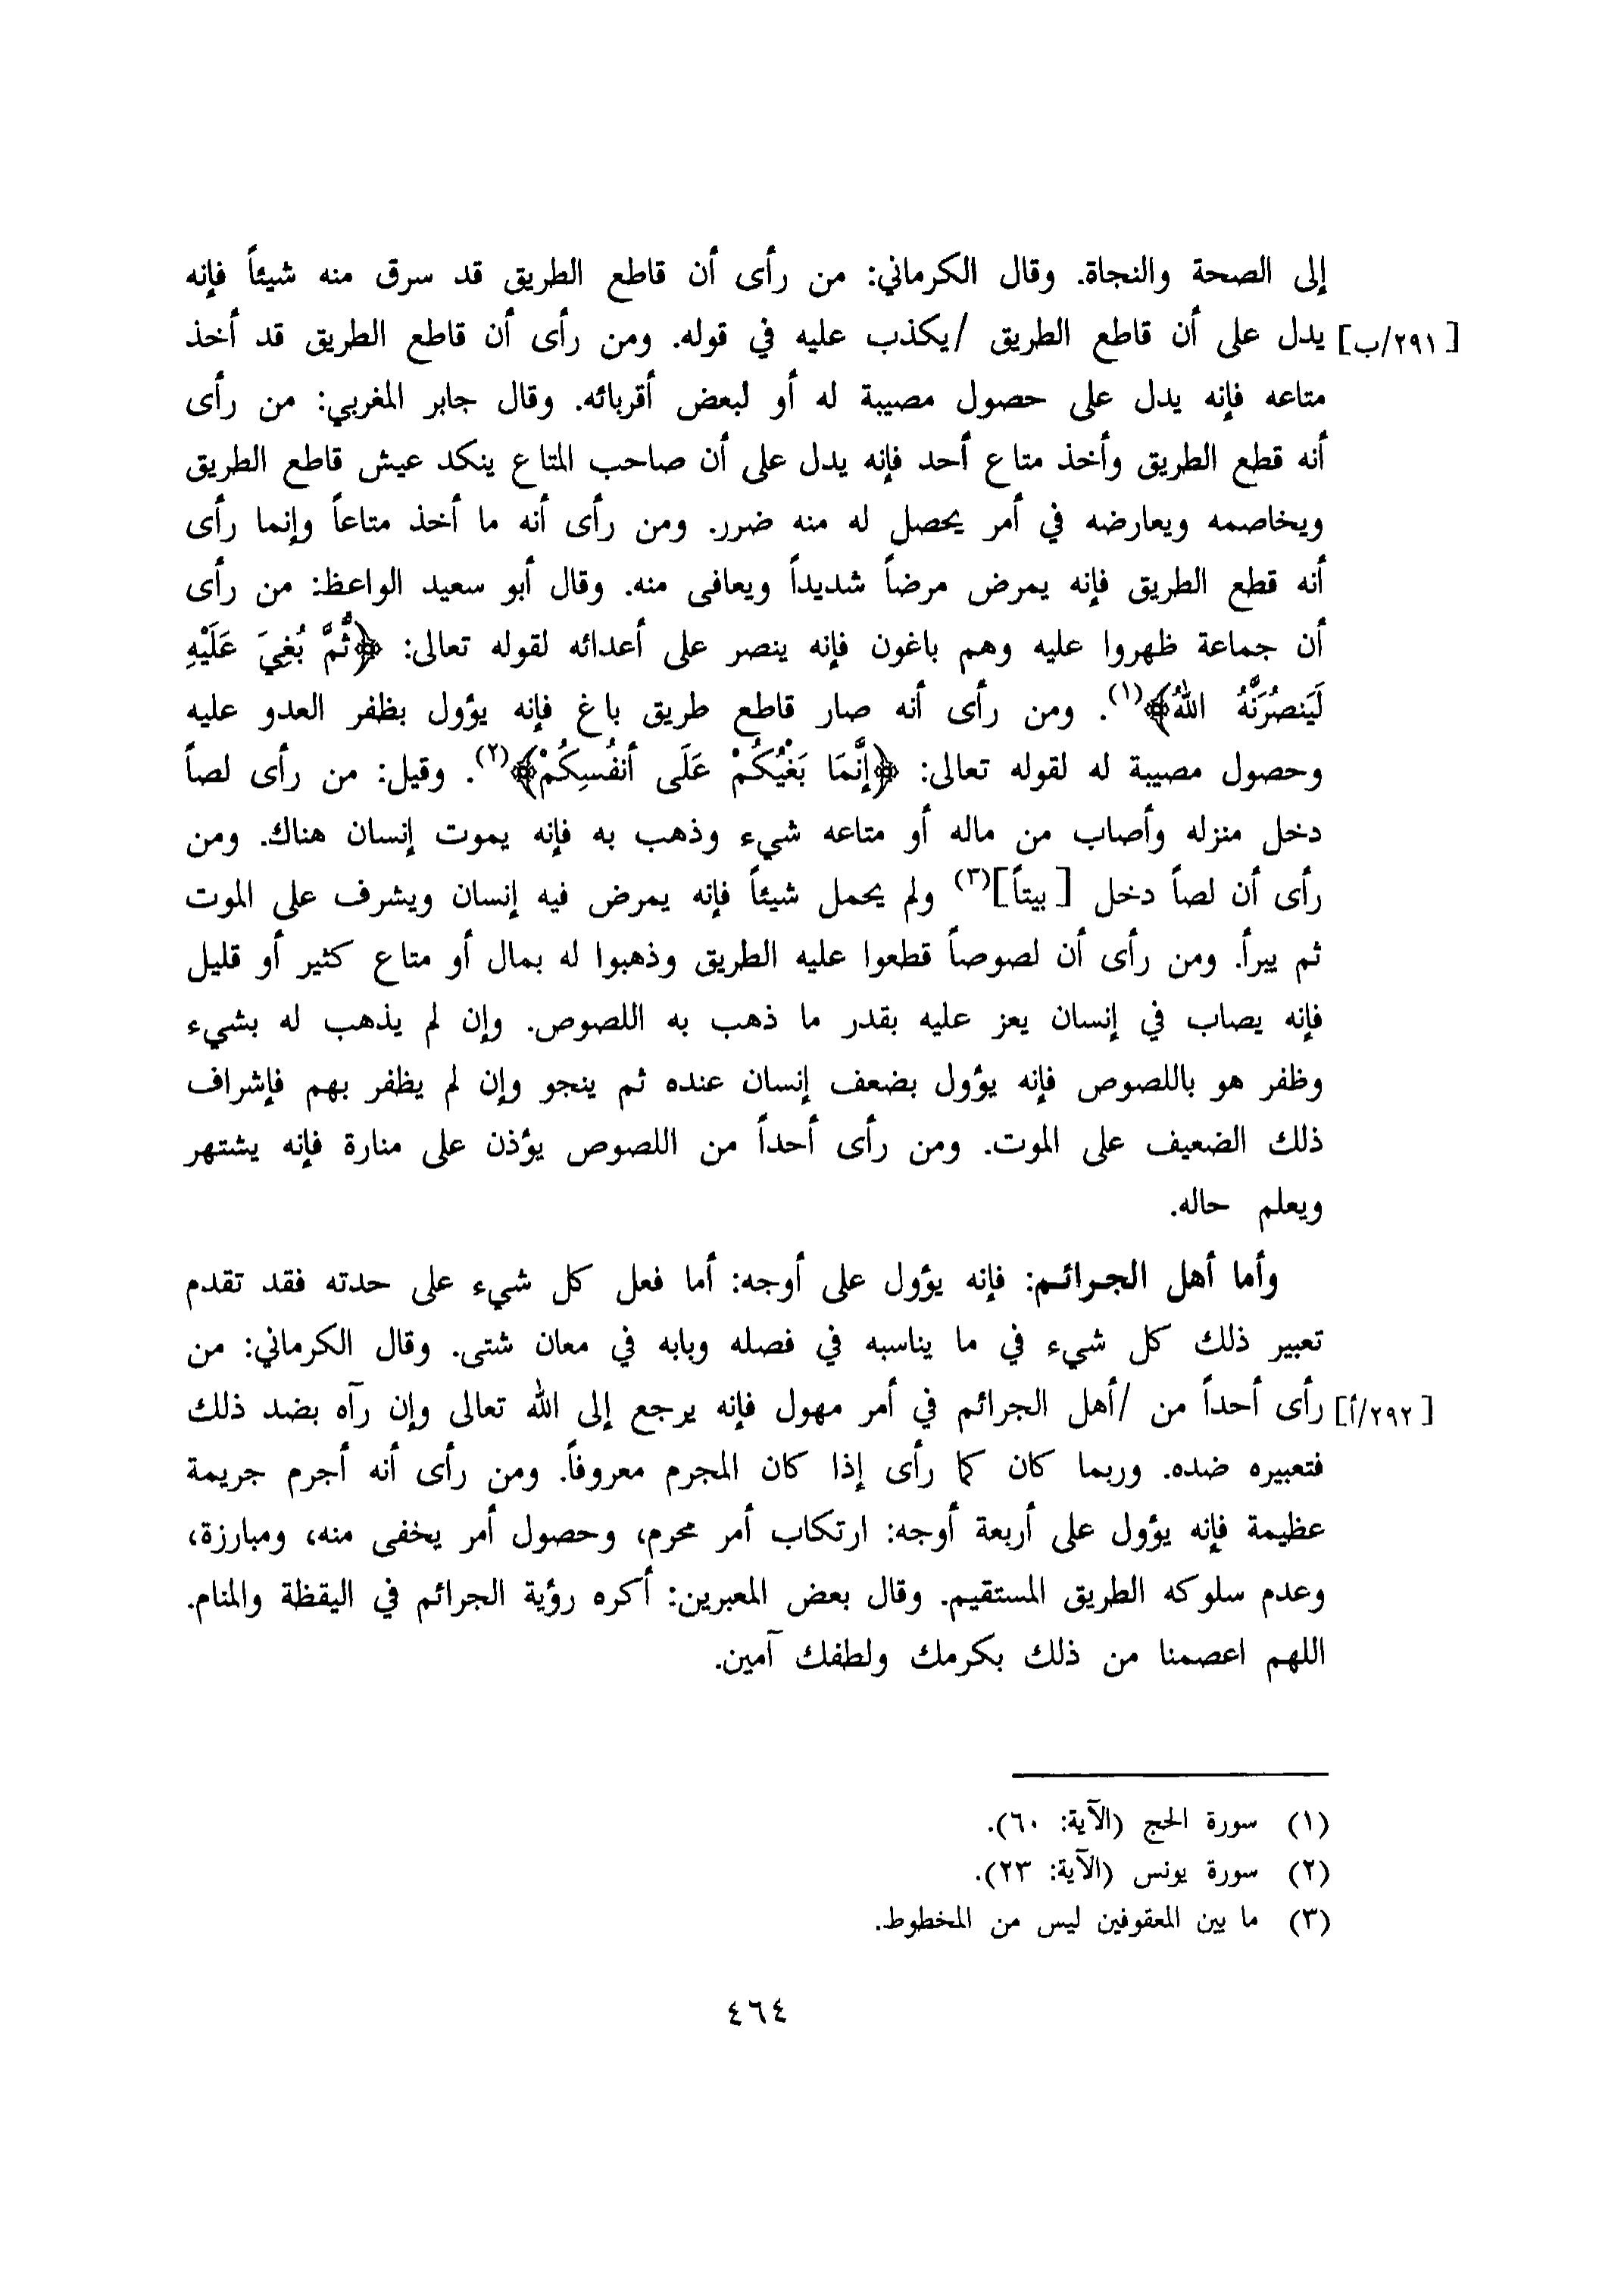 إلى الصحة والنجاة. وقال الكرماني: من رأى أن قاطع الطريق قد سرق منه شيئاً فإنه
[٢٩١/ب] يدل على أن قاطع الطريق /يكذب عليه في قوله. ومن رأى أن قاطع الطريق قد أخذ
متاعه فإنه يدل على حصول مصيبة له أو لبعض أقربائه. وقال جابر المغربي: من رأى
أنه قطع الطريق وأخذ متاع أحد فإنه يدل على أن صاحب المتاع ينكد عيش قاطع الطريق
ويخاصمه ويعارضه في أمر يحصل له منه ضرر. ومن رأى أنه ما أخذ متاعاً وإنما رأى
أنه قطع الطريق فإنه يمرض مرضاً شديداً ويعافى منه. وقال أبو سعيد الواعظ: من رأى
أن جماعة ظهروا عليه وهم باغون فإنه ينصر على أعدائه لقوله تعالى: ﴿ثُمَّ بُغِيَ عَلَيْهِ
لَيَنصُرَنَّهُ اللهُ﴾(١). ومن رأى أنه صار قاطع طريق باغ فإنه يؤول بظفر العدو عليه
وحصول مصيبة له لقوله تعالى: ﴿إِنَّمَا بَغْيُكُمْ عَلَى أَنفُسِكُمْ﴾(٢). وقيل: من رأى لصاً
دخل منزله وأصاب من ماله أو متاعه شيء وذهب به فإنه يموت إنسان هناك. ومن
رأى أن لصاً دخل [بيتاً](٣) ولم يحمل شيئاً فإنه يمرض فيه إنسان ويشرف على الموت
ثم يبرأ. ومن رأى أن لصوصاً قطعوا عليه الطريق وذهبوا له بمال أو متاع كثير أو قليل
فإنه يصاب في إنسان يعز عليه بقدر ما ذهب به اللصوص. وإن لم يذهب له بشيء
وظفر هو باللصوص فإنه يؤول بضعف إنسان عنده ثم ينجو وإن لم يظفر بهم فإشراف
ذلك الضعيف على الموت. ومن رأى أحداً من اللصوص يؤذن على منارة فإنه يشتهر
ويعلم حاله.
وأما أهل الجرائم: فإنه يؤول على أوجه: أما فعل كل شيء على حدته فقد تقدم
تعبير ذلك كل شيء في ما يناسبه في فصله وبابه في معان شتى. وقال الكرماني: من
[٢٩٢/أ] رأى أحداً من /أهل الجرائم في أمر مهول فإنه يرجع إلى الله تعالى وإن رآه بضد ذلك
فتعبيره ضده. وربما كان كما رأى إذا كان المجرم معروفاً. ومن رأى أنه أجرم جريمة
عظيمة فإنه يؤول على أربعة أوجه: ارتكاب أمر محرم، وحصول أمر يخفى منه، ومبارزة،
وعدم سلوكه الطريق المستقيم. وقال بعض المعبرين: أكره رؤية الجرائم في اليقظة والمنام.
اللهم اعصمنا من ذلك بكرمك ولطفك آمين.
(١) سورة الحج (الآية: ٦٠).
(٢) سورة يونس (الآية: ٢٣).
(٣) ما بين المعقوفين ليس من المخطوط.
٤٦٤